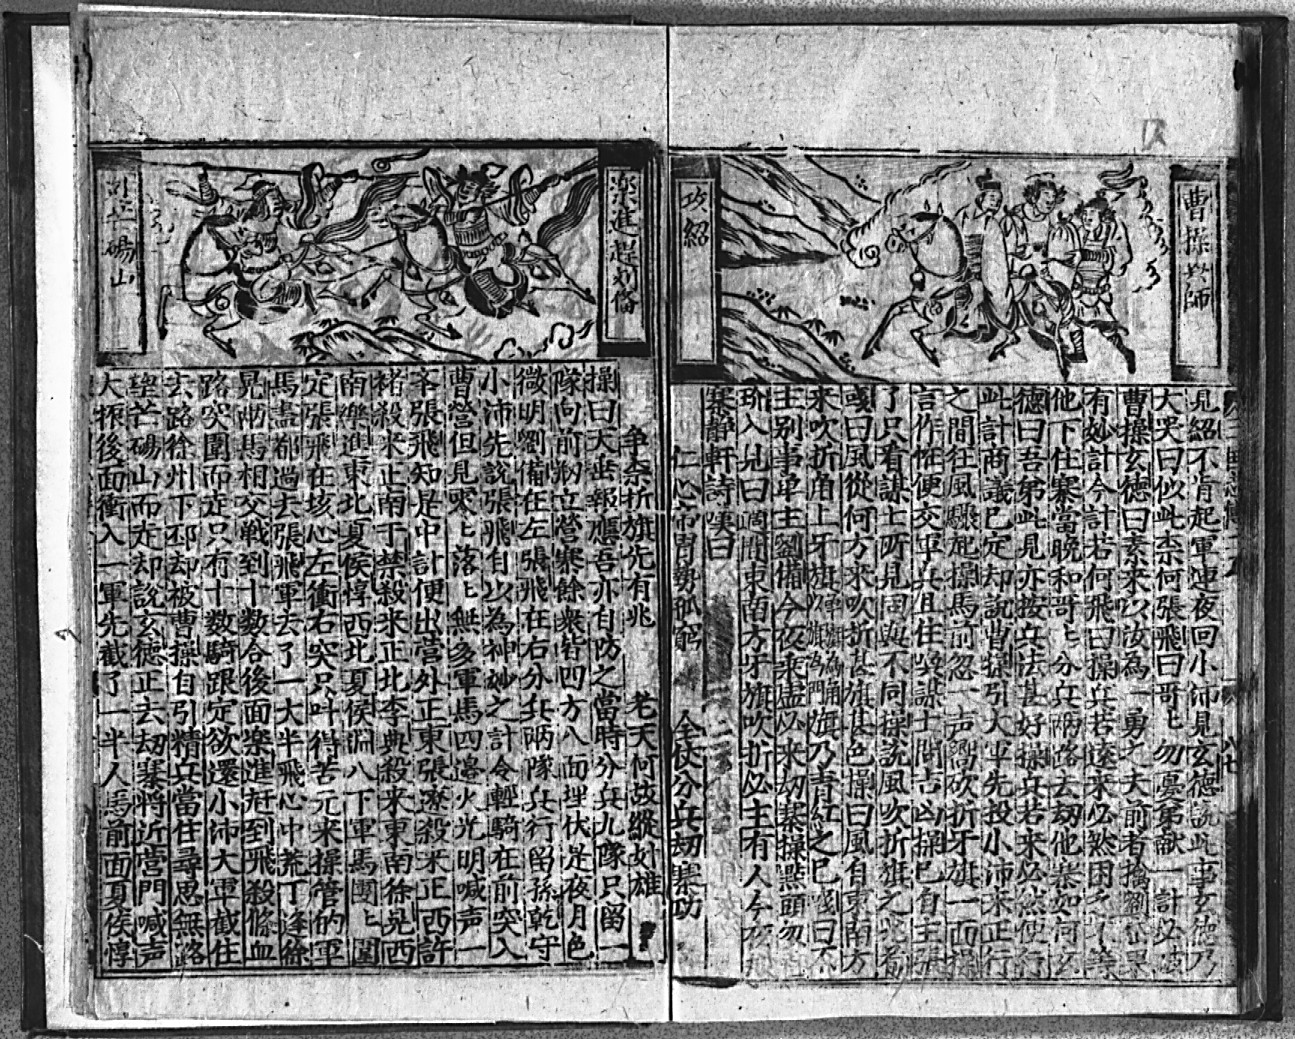 曹操▢師
攻紹
見紹不肯起軍連夜回小沛見玄德說此事玄德乃
大哭曰似此柰何張飛曰哥〻勿憂弟献一計必
曹操玄德曰素來以汝為一勇之夫前者擒劉岱
有妙計今計若何飛曰操兵若遠來必然困乏
他下住寨當晚和哥〻分兵兩路去刼他寨如何玄
德曰吾弟此見亦按兵法甚好操兵若來必然使行
此計商議已定却說曹操引大軍先投小沛來正行
之間狂風驟起操馬前忽一声响吹折牙旗一面操
言作怪便交軍兵且住喚謀士問吉凶操已自主張
了只看謀士所見同與不同操說風吹折旗之兆荀
彧曰風從何方來吹折甚旗甚色操曰風自東南方
來吹折角上牙旗旗乃青紅之已彧曰不
主别事单主劉備今夜乘虛必來刼寨操點頭勿
玠入見曰適間東南方牙旗吹折必主有人今夜
寨靜軒詩嘆曰
仁心帝胄勢孤窮 全伏分兵刼寨功
樂進趕刘偹
刘▢碭山
争柰折旗先有兆 老天何故縱奸雄
操曰天丗報應吾亦自防之當時分兵九隊只留一
隊向前剏立營寨餘衆皆四方八面埋伏是夜月色
微明劉偹在左張飛在右分兵兩隊兵行留孫乾守
小沛先說張飛自以為神妙之計令輕騎在前突入
曹營但見零〻落〻無多軍馬四邊火光明喊声一
𠫵張飛知是中計便出營外正東張遼殺來正西許
褚殺來正南于禁殺來正北李典殺來東南徐晃西
南樂進東北夏侯惇西北夏侯淵八下軍馬團〻圍
定張飛在垓心左衝右突只叫得苦元來操管的軍
馬盡都過去張飛軍去了一大半飛心中荒丁逢徐
晃兩馬相交戰到十数合後面樂進趕到飛殺條血
路突圍而走只有十数騎跟定欲還小沛大軍截住
去路徐州下邳却被曹操自引精兵當住尋思無路
望芒碭山而走却說玄德正去刼寨將近营門喊声
大振後面衝入一軍先截了一半人馬前面夏侯惇